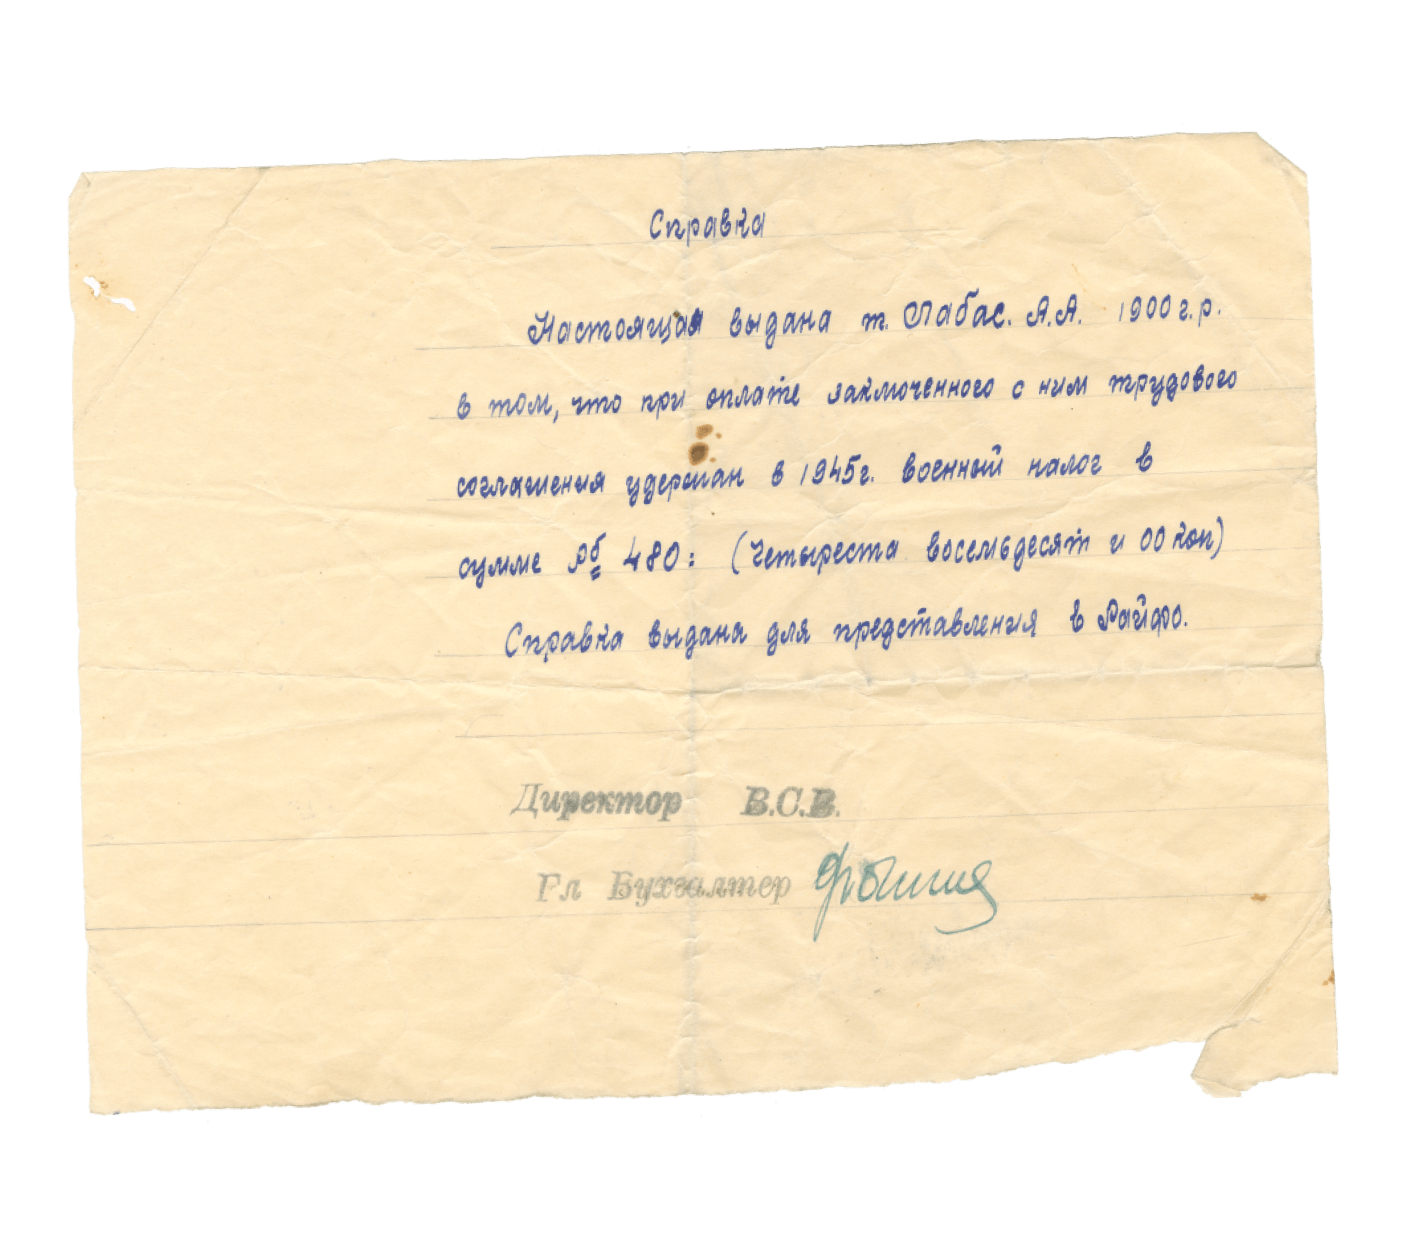 Справка
Настоящая выдана т. Лабас. А.А. 1900 г.р.
в том, что при оплате заключенного с ним трудового
соглашения удержан в 1945г. военный налог в
сумме Рб 480: (Четыреста восемьдесят и 00 коп)
Справка выдана для представления в Райфо.
Директор В.С.В.
Гл Бухгалтер